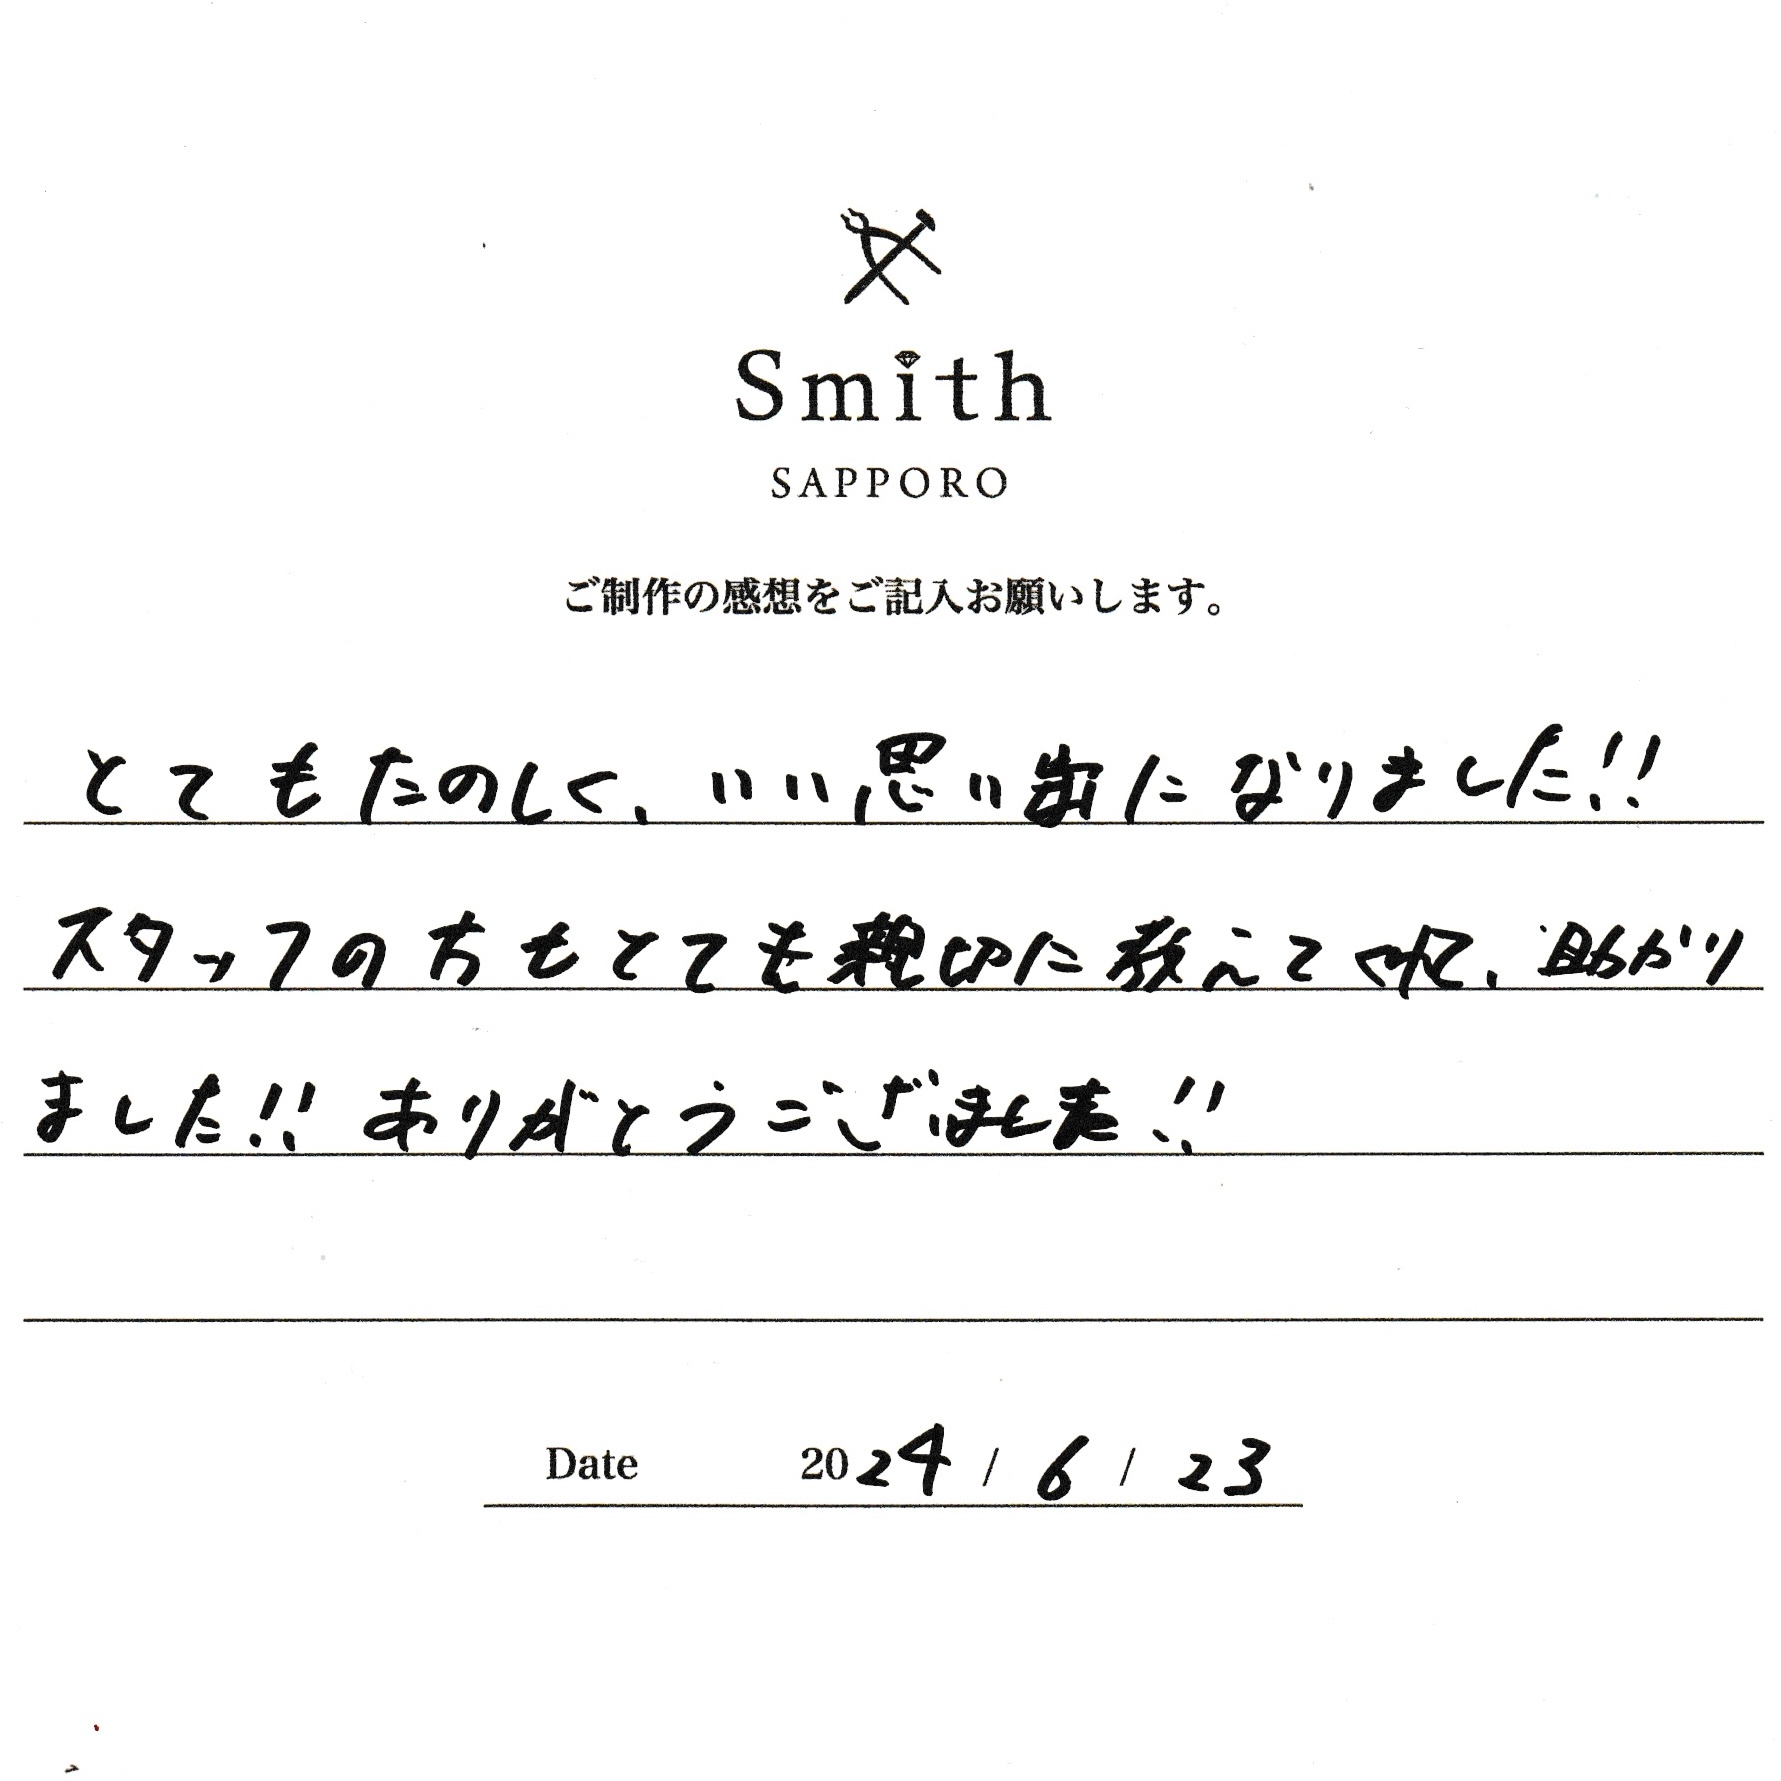 Smith
SAPPORO
ご制作の感想をご記入お願いします。
とてもたのしく、いい思い出になりました!!
スタッフの方もとても親切に教えてくれて、助かり
ました!! ありがとうございました!!
Date 2024 / 6 / 23